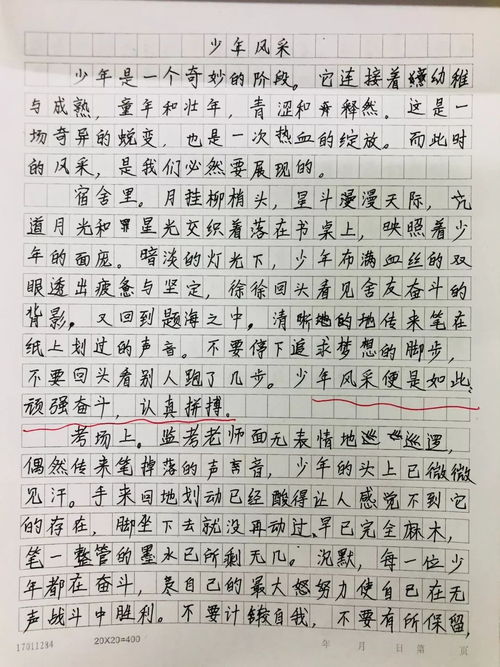 少年风采
少年是一个奇妙的阶段。它连接着幼稚
与成熟，童年和壮年，青涩和释然。这是一
场奇异的蜕变，也是一次热血的绽放。而此时
的风采，是我们必然要展现的。
宿舍里。月挂柳梢头，星斗漫漫天际，
道月光和星光交织着落在书桌上，映照着少
年的面庞。暗淡的灯光下，少年布满血丝的双
眼透出疲惫与坚定，徐徐回头看见舍友奋斗的
背影，又回到题海之中。清晰地的地传来笔在
纸上划过的声音。不要停下追求梦想的脚步，
不要回头看别人跑了几步。少年风采便是如此，
顽强奋斗，认真拼搏。
考场上。监考老师面无表情地巡巡逻，
偶然传来笔掉落的声音，少年的头上已微微
见汗。手来回地划动已经酸得让人感觉不到它
的存在，脚坐下去就没再动过，早已完全麻木，
笔一整管的墨水已所剩无几。沉默，每一位少
年都在奋斗，自己的最大努力使自己在无
声战斗中胜利。不要计较自我，不要有所保留，
17011284 20×20=400 年 月 日 第 页